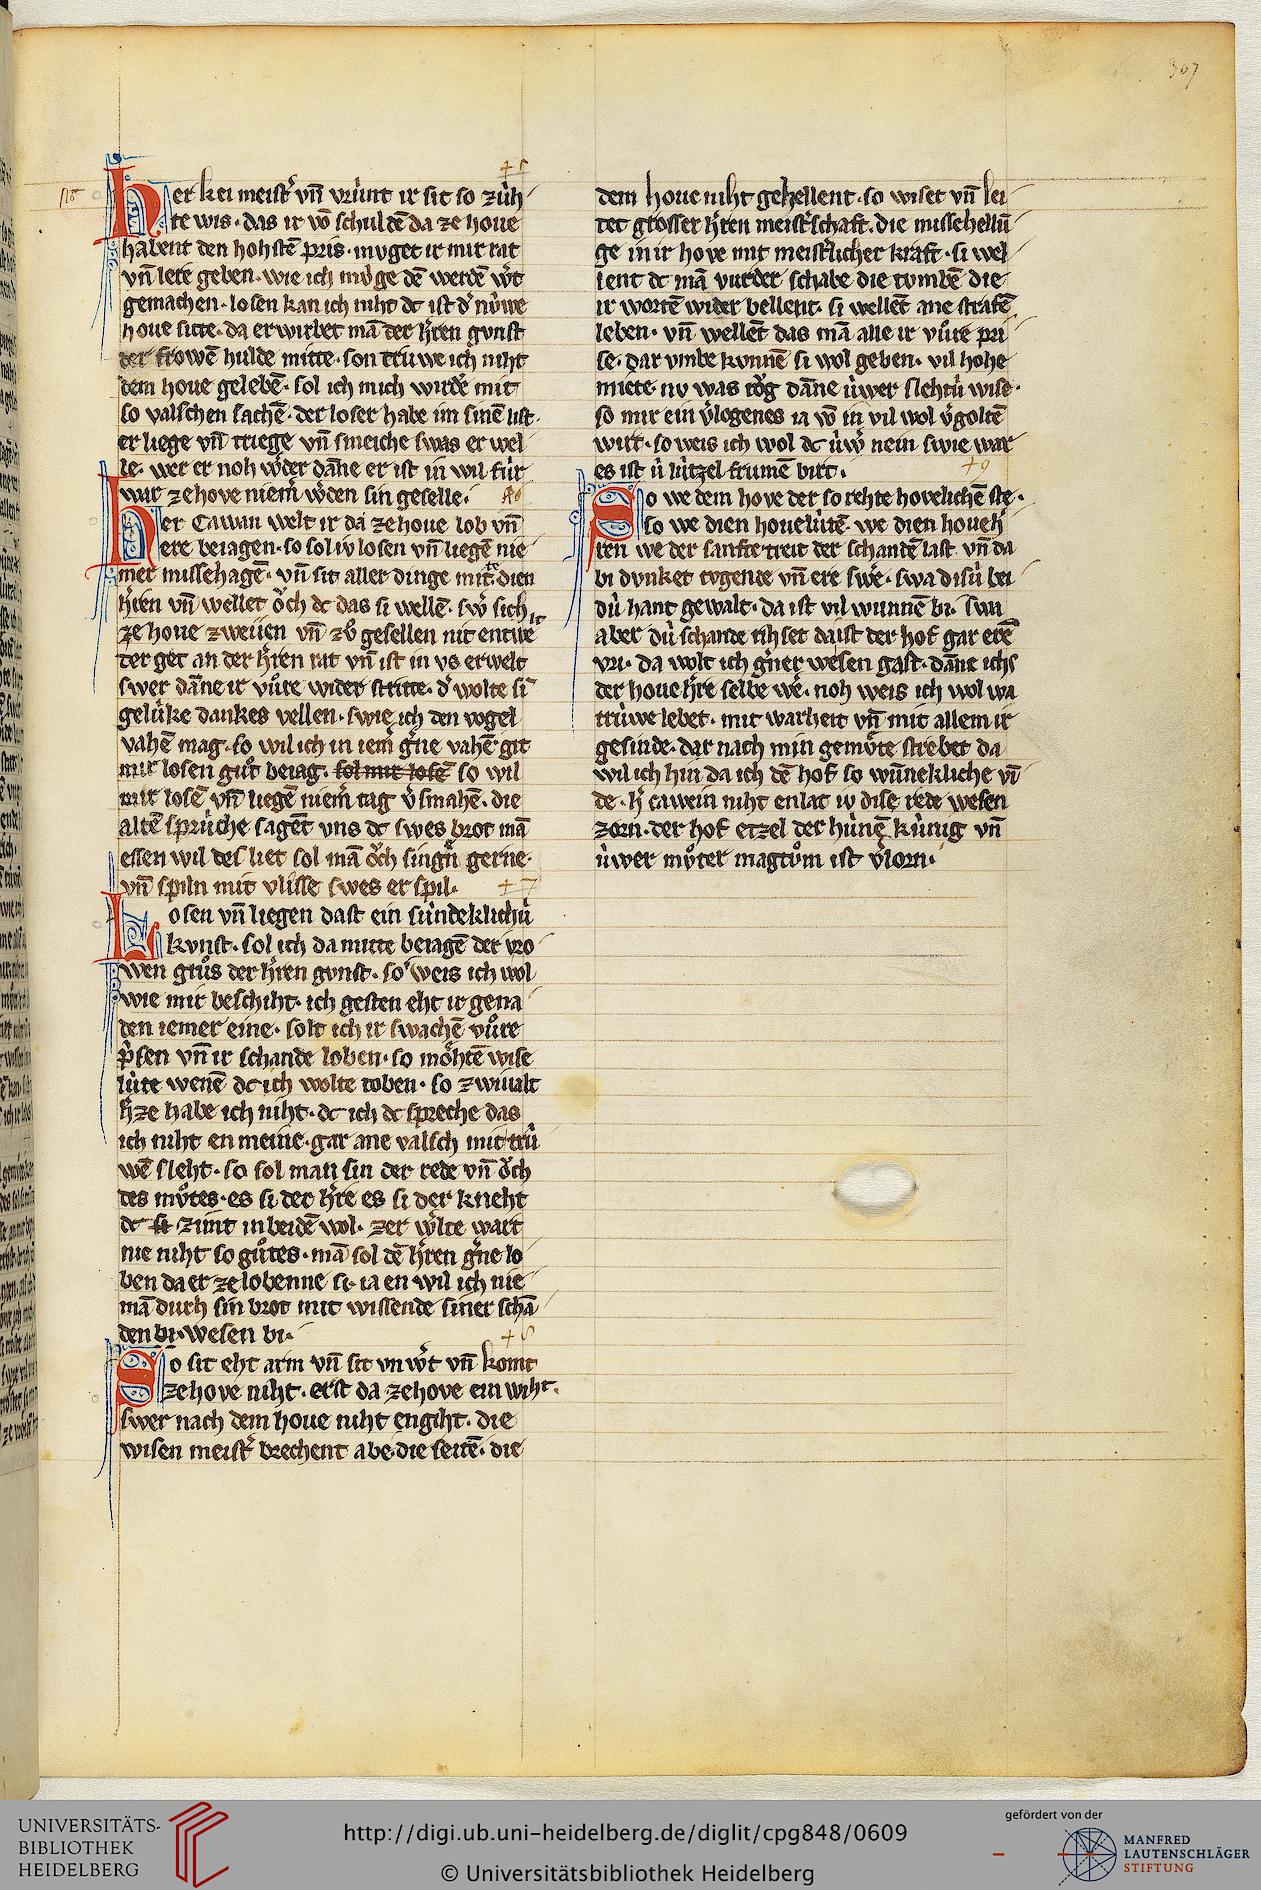 307
Her kei meistˀ vn̄ vrúnt ir sit so zúh
te wis · das ir vō schuldē da ze houe
habent den hohstē pris · mvget ir mir rat
vn̄ lere geben · wie ich mv́ge dē werdē wˀt
gemachen · losen kan ich niht dc ist dˀ núwe
houe sitte · da erwirbet mā der hˀren gvnst
der frowē hulde mitte · son trúwe ich niht
dem houe gelebē · sol ich mich wirdē mit
so valschen sachē · der loser habe im sinē list ·
er liege vn̄ triege vn̄ smeiche swas er wel
le · wer er noh wˀder dāne er ist in wil fúr
war ze hove niemˀ wˀden sin geselle ·
Her Gawan welt ir da ze houe lob vn̄
ere beiagen · so sol iv losen vn̄ liegē nie
mer missehagē · vn̄ sit aller dinge mitte dien
hˀren vn̄ wellet ǒch dc das si wellē · swˀ sich
ze houe zweiien vn̄ zů gesellen nit entwe
der get an der hˀren rat vn̄ ist in vs erwelt
swer dāne ir vůre wider stritte · dˀ wolte sī
gelúke dankes vellen · swie ich den vogel
vahē mag · so wil ich in iemˀ gˀne vahē git
mir losen gůt beiag · sol mir losē so wil
mir losē vn̄ liegē niemˀ tag vˀsmahē · die
altē sprúche sagēt vns dc swes brot mā
essen wil des liet sol mā ǒch singn̄ gerne ·
vn̄ spiln mit vlisse swes er spil · + 7
Losen vn̄ liegen dast ein súndeklichú
kvnst · sol ich da mitte beiagē der vro
wen grůs der hˀren gvnst · so weis ich wol
wie mir beschiht · ich gesten eht ir gena
den iemer eine · solt ich ir swachē vůre
pˀsen vn̄ ir schande loben · so mǒhtē wise
lúte wenē dc ich wolte toben · so zwiualt
hˀze habe ich niht · dc ich dc spreche das
ich niht en meine · gar ane valsch mit trú
wē sleht · so sol man sin der rede vn̄ ǒch
des můtes · es si der hˀre es si der kneht
dc zimt in beidē wol · zer wˀlte wart
nie niht so gůtes · mā sol dē hˀren gˀne lo
ben da er ze lobenne si · ia en wil ich nie
mā durh sin brot mit wissende siner schā
den bi · wesen bi ·
So sit eht arm vn̄ sit vn wˀt vn̄ komt
ze hove niht · erst da ze hove ein wiht ·
swer nach dem houe niht engiht · die
wisen meistˀ brechent abe die seitē · die
dem houe niht gehellent · so wiset vn̄ lei
tet grosser hˀren meistˀschaft · die missehellū
ge in ir hove mit meistˀlicher kraft · si wel
lent dc mā vurder schabe die tvmbē die
ir wortē wider bellent · si wellēt ane strafē
leben · vn̄ wellēt das mā alle ir vůre pri
se · dar vmbe kvnnē si wol geben · vil hohe
miete · nv was tǒg dāne úwer slehtú wise ·
so mir ein vˀlogenes ia vō in vil wol vˀgoltē
wirt · so weis ich wol dc úwˀ nein swie war
es ist ú lútzel frumē birt · + 9
So we dem hove der so rehte hovelichē ste ·
so we dien houelútē · we dien houehˀ
ren we der sanfte treit der schandē last vn̄ da
bi dvnket tvgende vn̄ ere swˀe · swa disú bei
dú hant gewalt · da ist vil wunnē bi · swa
aber dú schande rihset da ist der hof gar erē
vri · da wolt ich gˀner wesen gast · dāne ichs
der houe hˀre selbe wˀe · noh weis ich wol wa
trúwe lebet · mit warheit vn̄ mit allem ir
gesinde · dar nach min gemv́te strebet da
wil ich hin da ich dē hof so wúnnekliche vī
de · hˀ Gawein niht enlat iv dise rede wesen
zorn · der hof etzel der húnē kúnig vn̄
úwer můter magtům ist vˀlorn ·
UNIVERSITÄTS-
BIBLIOTHEK
HEIDELBERG
http://digi.ub.uni-heidelberg.de/diglit/cpg848/0609
© Universitätsbibliothek Heidelberg
gefördert von der
MANFRED
LAUTENSCHLÄGER
STIFTUNG